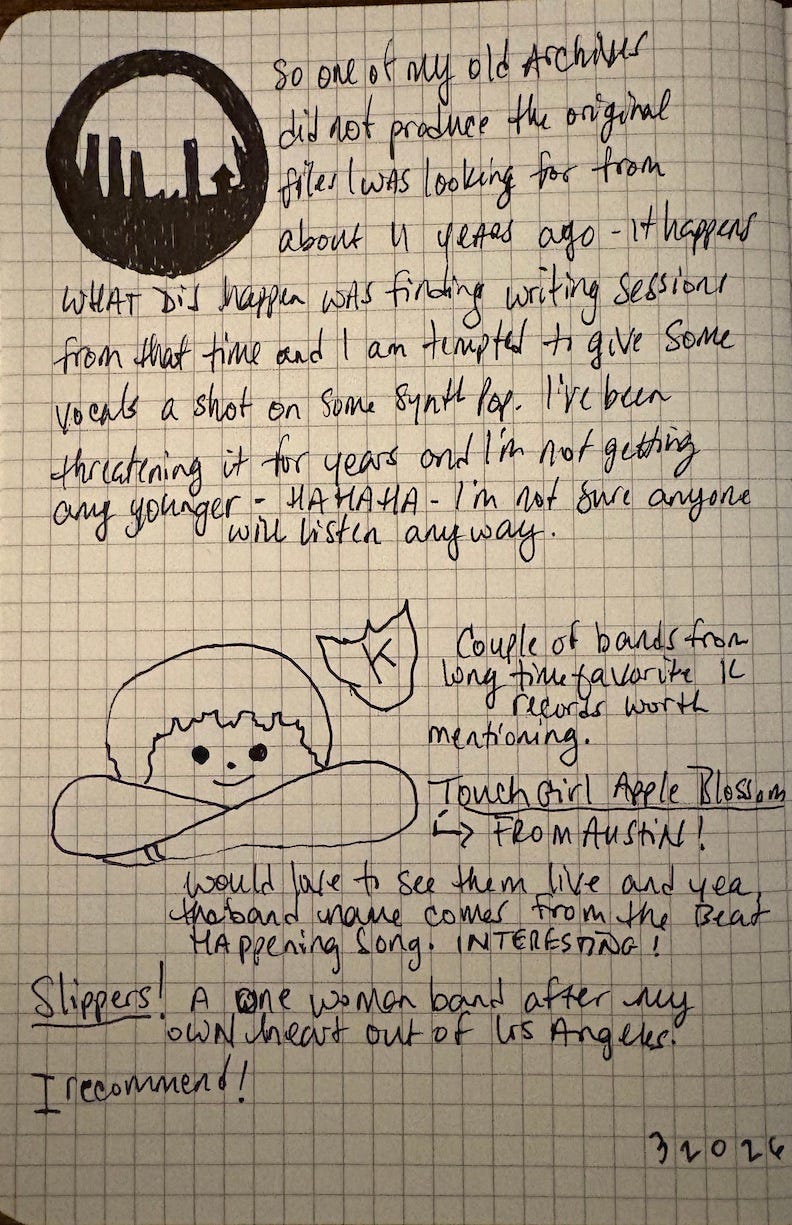 So one of my old Archives
did not produce the original
files I was looking for from
about 11 years ago - it happens
WHAT DID happen was finding writing sessions
from that time and I am tempted to give some
vocals a shot on some synth pop. I've been
threatening it for years and I'm not getting
any younger - HAHAHA - I'm not sure anyone
will listen anyway.
K
Couple of bands from
long time favorite K
records worth
mentioning.
Touch Girl Apple Blossom
↳ FROM AUSTIN!
would love to see them live and yea,
the band name comes from the Beat
HAppening Song. INTERESTING!
Slippers! A one woman band after my
own heart out of Los Angeles.
I recommend!
3 2 0 2 6